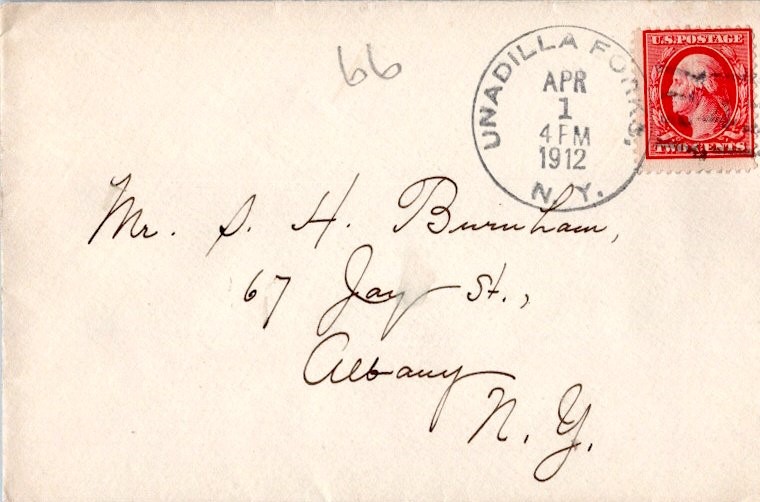 66
UNADILLA FORKS,
APR
1
4 PM
1912
N.Y.
U.S. POSTAGE
TWO CENTS
Mr. S. H. Burnham,
67 Jay St.,
Albany
N. Y.